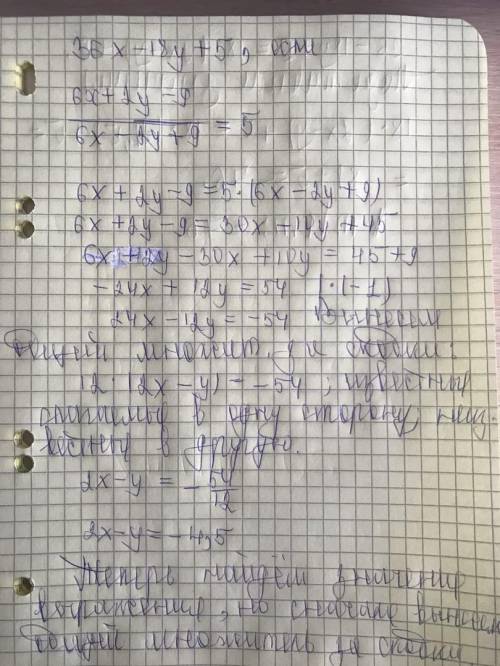 36x - 18y + 5, если
6x + 2y - 9
6x - 2y + 9 = 5
6x + 2y - 9 = 5 · (6x - 2y + 9)
6x + 2y - 9 = 30x - 10y + 45
6x + 2y - 30x + 10y = 45 + 9
-24x + 12y = 54 | · (-1)
24x - 12y = -54 Вынесем
общий множит. за скобки.
12 · (2x - y) = -54, известные
в одну сторону, неиз-
вестные в другую.
2x - y = - 54
12
2x - y = -4,5
Теперь найдём значение
выражения, но сначала вынесем
общий множитель за скобки